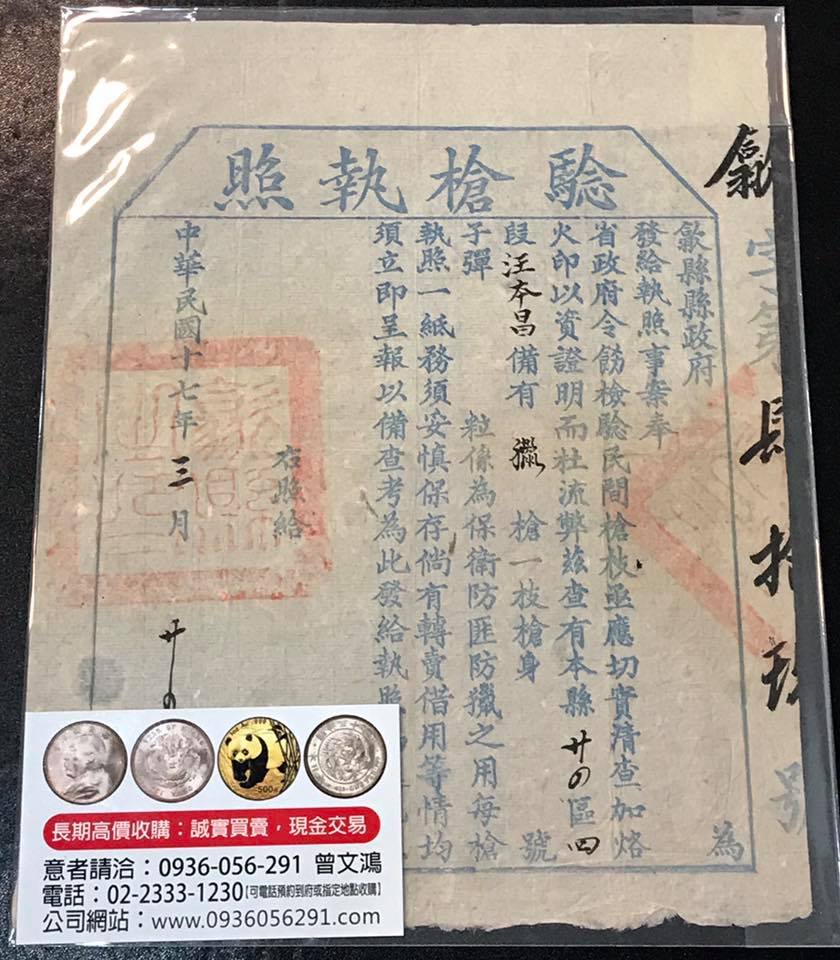 騐槍執照
歙字第肆拾玖號
歙縣縣政府　為
發給執照事案奉
省政府令飭檢騐民間槍枝亟應切實清查加烙
火印以資證明而杜流弊茲查有本縣廿の區四
段汪本昌備有獵槍一枝槍身號
子彈　粒係為保衛防匪防獵之用每槍
執照一紙務須妥慎保存倘有轉賣借用等情均
須立即呈報以備查考為此發給執照
右照給
中華民國十七年三月廿の
長期高價收購：誠實買賣，現金交易
意者請洽：0936-056-291 曾文鴻
電話：02-2333-1230【可電話預約到府或指定地點收購】
公司網站：www.0936056291.com